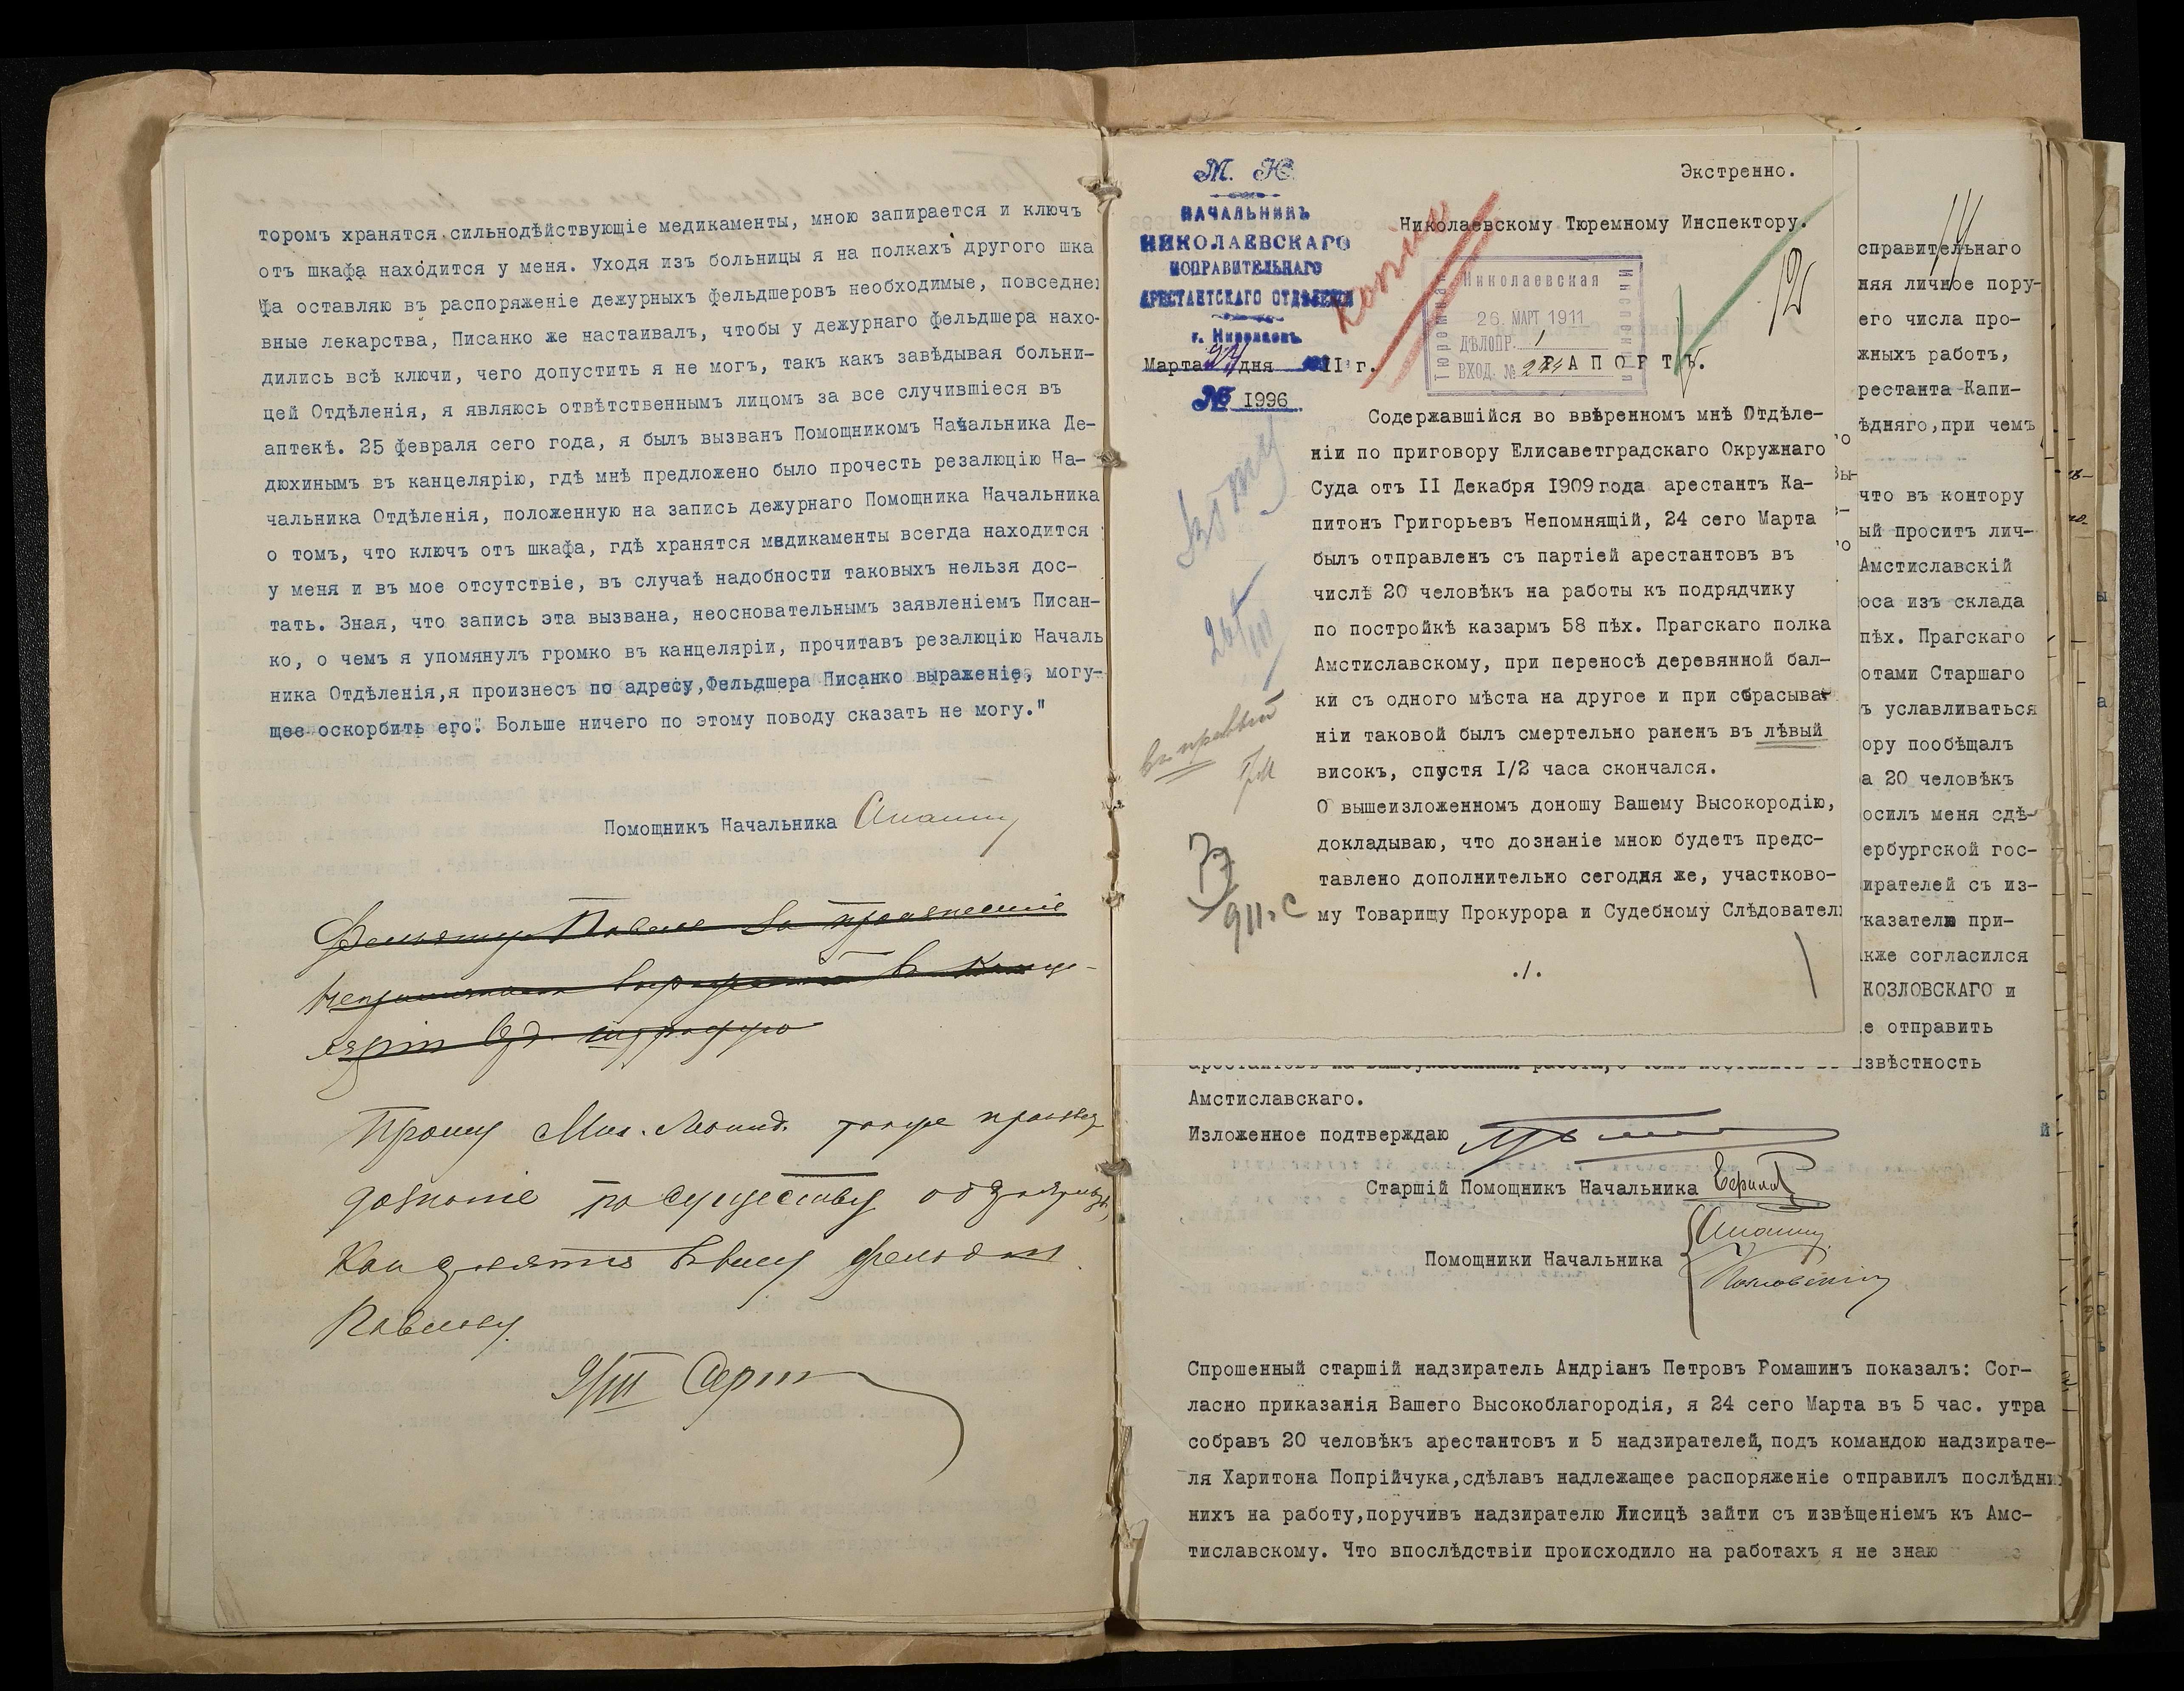 торомъ хранятся сильнодѣйствующіе медикаменты, мною запирается и ключъ
отъ шкафа находится у меня. Уходя изъ больницы я на полкахъ другого шка
фа оставляю въ распоряженіе дежурныхъ фельдшеровъ необходимые, повседнев
вные лекарства, Писанко же настаивалъ, чтобы у дежурнаго фельдшера нахо-
дились всѣ ключи, чего допустить я не могъ, такъ какъ завѣдывая больни-
цей Отдѣленія, я являюсь отвѣтственнымъ лицомъ за все случившіеся въ
аптекѣ. 25 февраля сего года, я былъ вызванъ Помощникомъ Начальника Де-
дюхинымъ въ канцелярію, гдѣ мнѣ предложено было прочесть резалюцію На-
чальника Отдѣленія, положенную на запись дежурнаго Помощника Начальника
о томъ, что ключъ отъ шкафа, гдѣ хранятся медикаменты всегда находится
у меня и въ мое отсутствіе, въ случаѣ надобности таковыхъ нельзя дос-
тать. Зная, что запись эта вызвана, неосновательнымъ заявленіемъ Писан-
ко, о чемъ я упомянулъ громко въ канцеляріи, прочитавъ резалюцію Началь
ника Отдѣленія, я произнесъ по адресу, Фельдшера Писанко выраженіе, могу-
щее оскорбить его." Больше ничего по этому поводу сказать не могу."
Помощникъ Начальника
Прошу
дознаніе по существу
Павлову.
9/III
М. Ю.
НАЧАЛЬНИКЪ
НИКОЛАЕВСКАГО
ИСПРАВИТЕЛЬНАГО
АРЕСТАНТСКАГО ОТДѢЛЕНІЯ
г. Николаевъ
Марта 24 дня 1911 г.
№ 1996
Экстренно.
Николаевскому Тюремному Инспектору.
копія
12
Николаевская
Тюремная
Инспекція
26. МАРТ 1911
ДѢЛОПР. 1
ВХОД. №
РАПОРТЪ.
Содержавшійся во ввѣренномъ мнѣ Отдѣле-
ніи по приговору Елисаветградскаго Окружнаго
Суда отъ II Декабря I909 года арестантъ Ка-
питонъ Григорьевъ Непомнящій, 24 сего Марта
былъ отправленъ съ партіей арестантовъ въ
числѣ 20 человѣкъ на работы къ подрядчику
по постройкѣ казармъ 58 пѣх. Прагскаго полка
Амстиславскому, при переносѣ деревянной бал-
ки съ одного мѣста на другое и при сбрасыва-
ніи таковой былъ смертельно раненъ въ лѣвый
високъ, спустя I/2 часа скончался.
О вышеизложенномъ доношу Вашему Высокородію,
докладываю, что дознаніе мною будетъ предс-
тавлено дополнительно сегодня же, участково-
му Товарищу Прокурора и Судебному Слѣдователю
./.
26/III
въ правый
14
справительнаго
няя личное пору-
его числа про-
жныхъ работъ,
рестанта Капи-
ѣдняго, при чемъ
что въ контору
ый просить лич-
Амстиславскій
оса изъ склада
пѣх. Прагскаго
отами Старшаго
ъ уславливаться
ору пообѣщалъ
а 20 человѣкъ
осилъ меня сдѣ-
ербургской гос-
ирателей съ из-
казателю при-
кже согласился
КОЗЛОВСКАГО и
е отправить
извѣстность
Амстиславскаго.
Изложенное подтверждаю
Старшій Помощникъ Начальника
Помощники Начальника
Спрошенный старшій надзиратель Андріанъ Петровъ Ромашинъ показалъ: Сог-
ласно приказанія Вашего Высокоблагородія, я 24 сего Марта въ 5 час. утра
собравъ 20 человѣкъ арестантовъ и 5 надзирателей, подъ командою надзирате-
ля Харитона Попрійчука, сдѣлавъ надлежащее распоряженіе отправилъ послѣдни
нихъ на работу, поручивъ надзирателю Лисицѣ зайти съ извѣщеніемъ къ Амс-
тиславскому. Что впослѣдствіи происходило на работахъ я не знаю